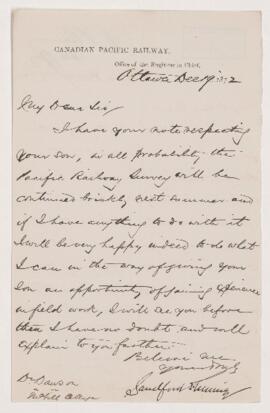 CANADIAN PACIFIC RAILWAY.
Office of the Engineer in Chief,
Ottawa Dec 1872
My Dear Sir
I have your note respecting
your son, in all probability the
Pacific Railway Survey will be
continued briskly next summer and
if I have anything to do with it
I will be very happy indeed to do what
I can in the way of giving your
son an opportunity of gaining experience
in field work, I will see you before
then I have no doubt and will
explain to you farther.
Believe me
Yours truly
Sandford Fleming
Dr Dawson
McGill College